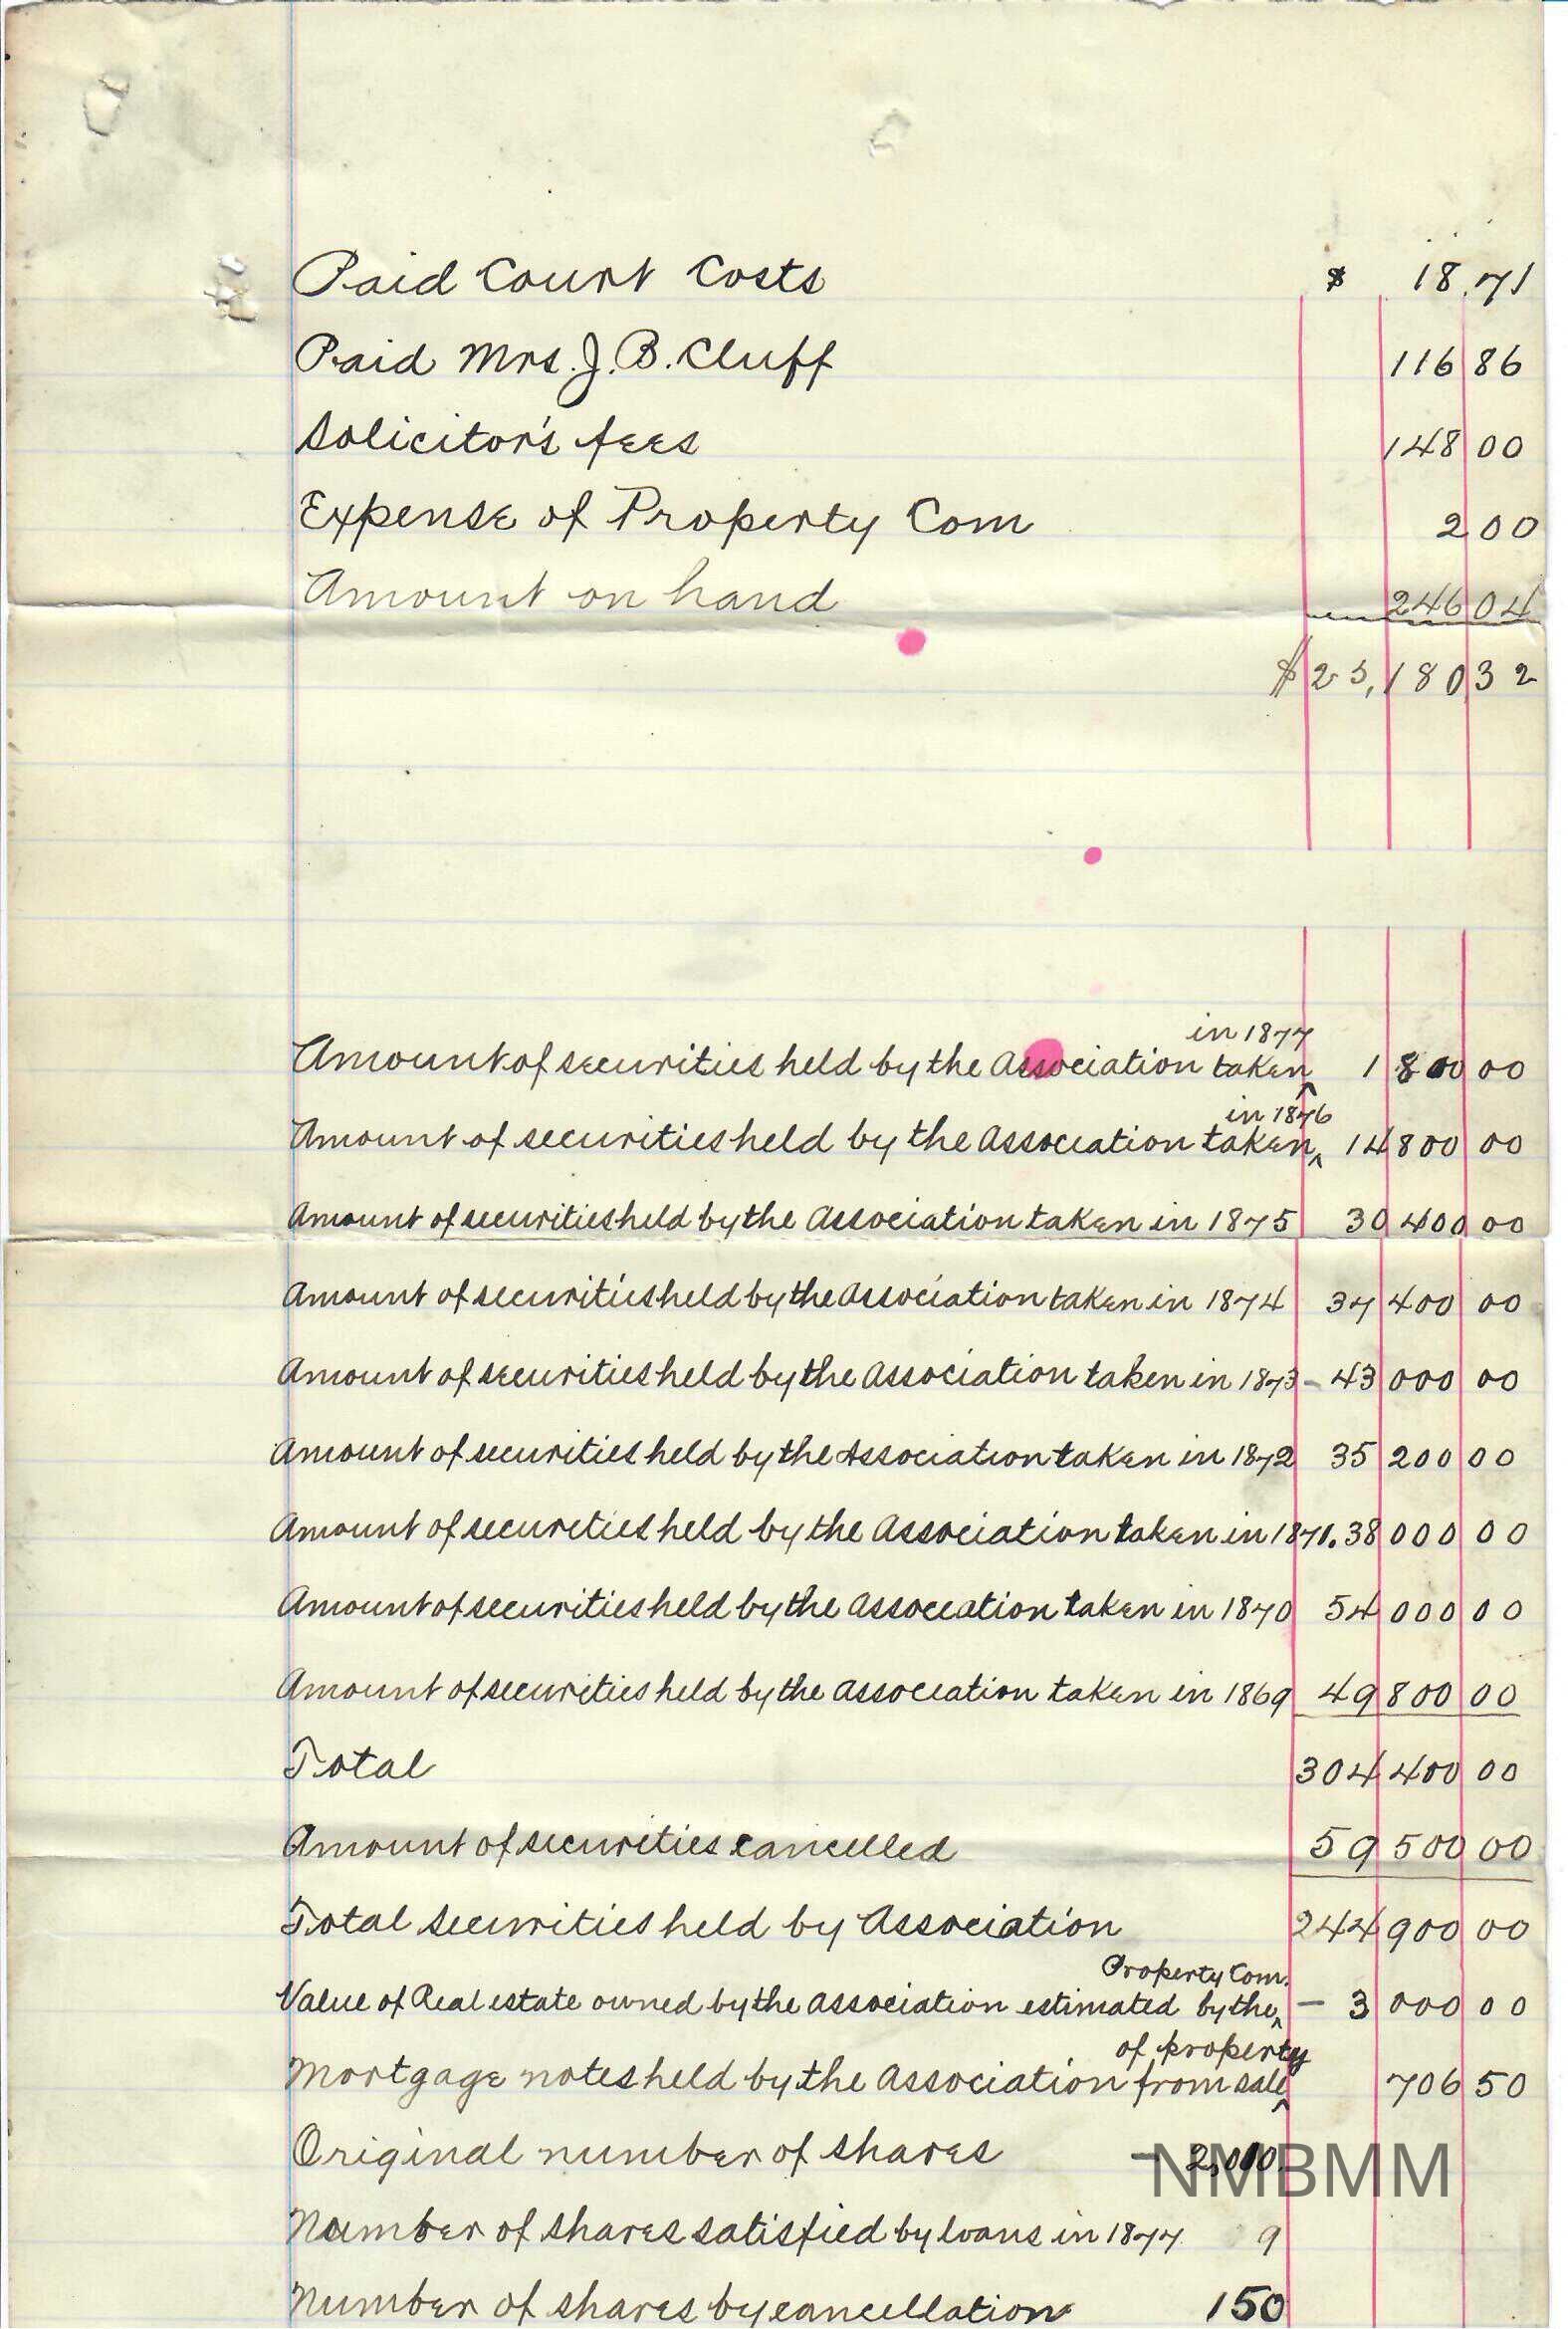 Paid Court Costs $ 18.71
Paid Mrs. J. B. Cluff 116 86
Solicitor's fees 148 00
Expense of Property Com 2 00
Amount on hand 246 04
$ 23,180 32
Amount of securities held by the Association taken ^in 1877 1 800 00
Amount of securities held by the Association taken ^in 1876 14 800 00
Amount of securities held by the Association taken in 1875 30 400 00
Amount of securities held by the Association taken in 1874 37 400 00
Amount of securities held by the Association taken in 1873 - 43 000 00
Amount of securities held by the Association taken in 1872 35 200 00
Amount of securities held by the Association taken in 1871. 38 000 00
Amount of securities held by the Association taken in 1870 54 000 00
Amount of securities held by the Association taken in 1869 49 800 00
Total 304 400 00
Amount of securities cancelled 59 500 00
Total securities held by Association 244 900 00
Value of Real estate owned by the Association estimated by the ^Property Com. - 3 000 00
Mortgage notes held by the Association from sale ^of property 706 50
Original number of shares - 2,000.
NMBMM
Number of shares satisfied by loans in 1877 9
Number of shares by cancellation 150